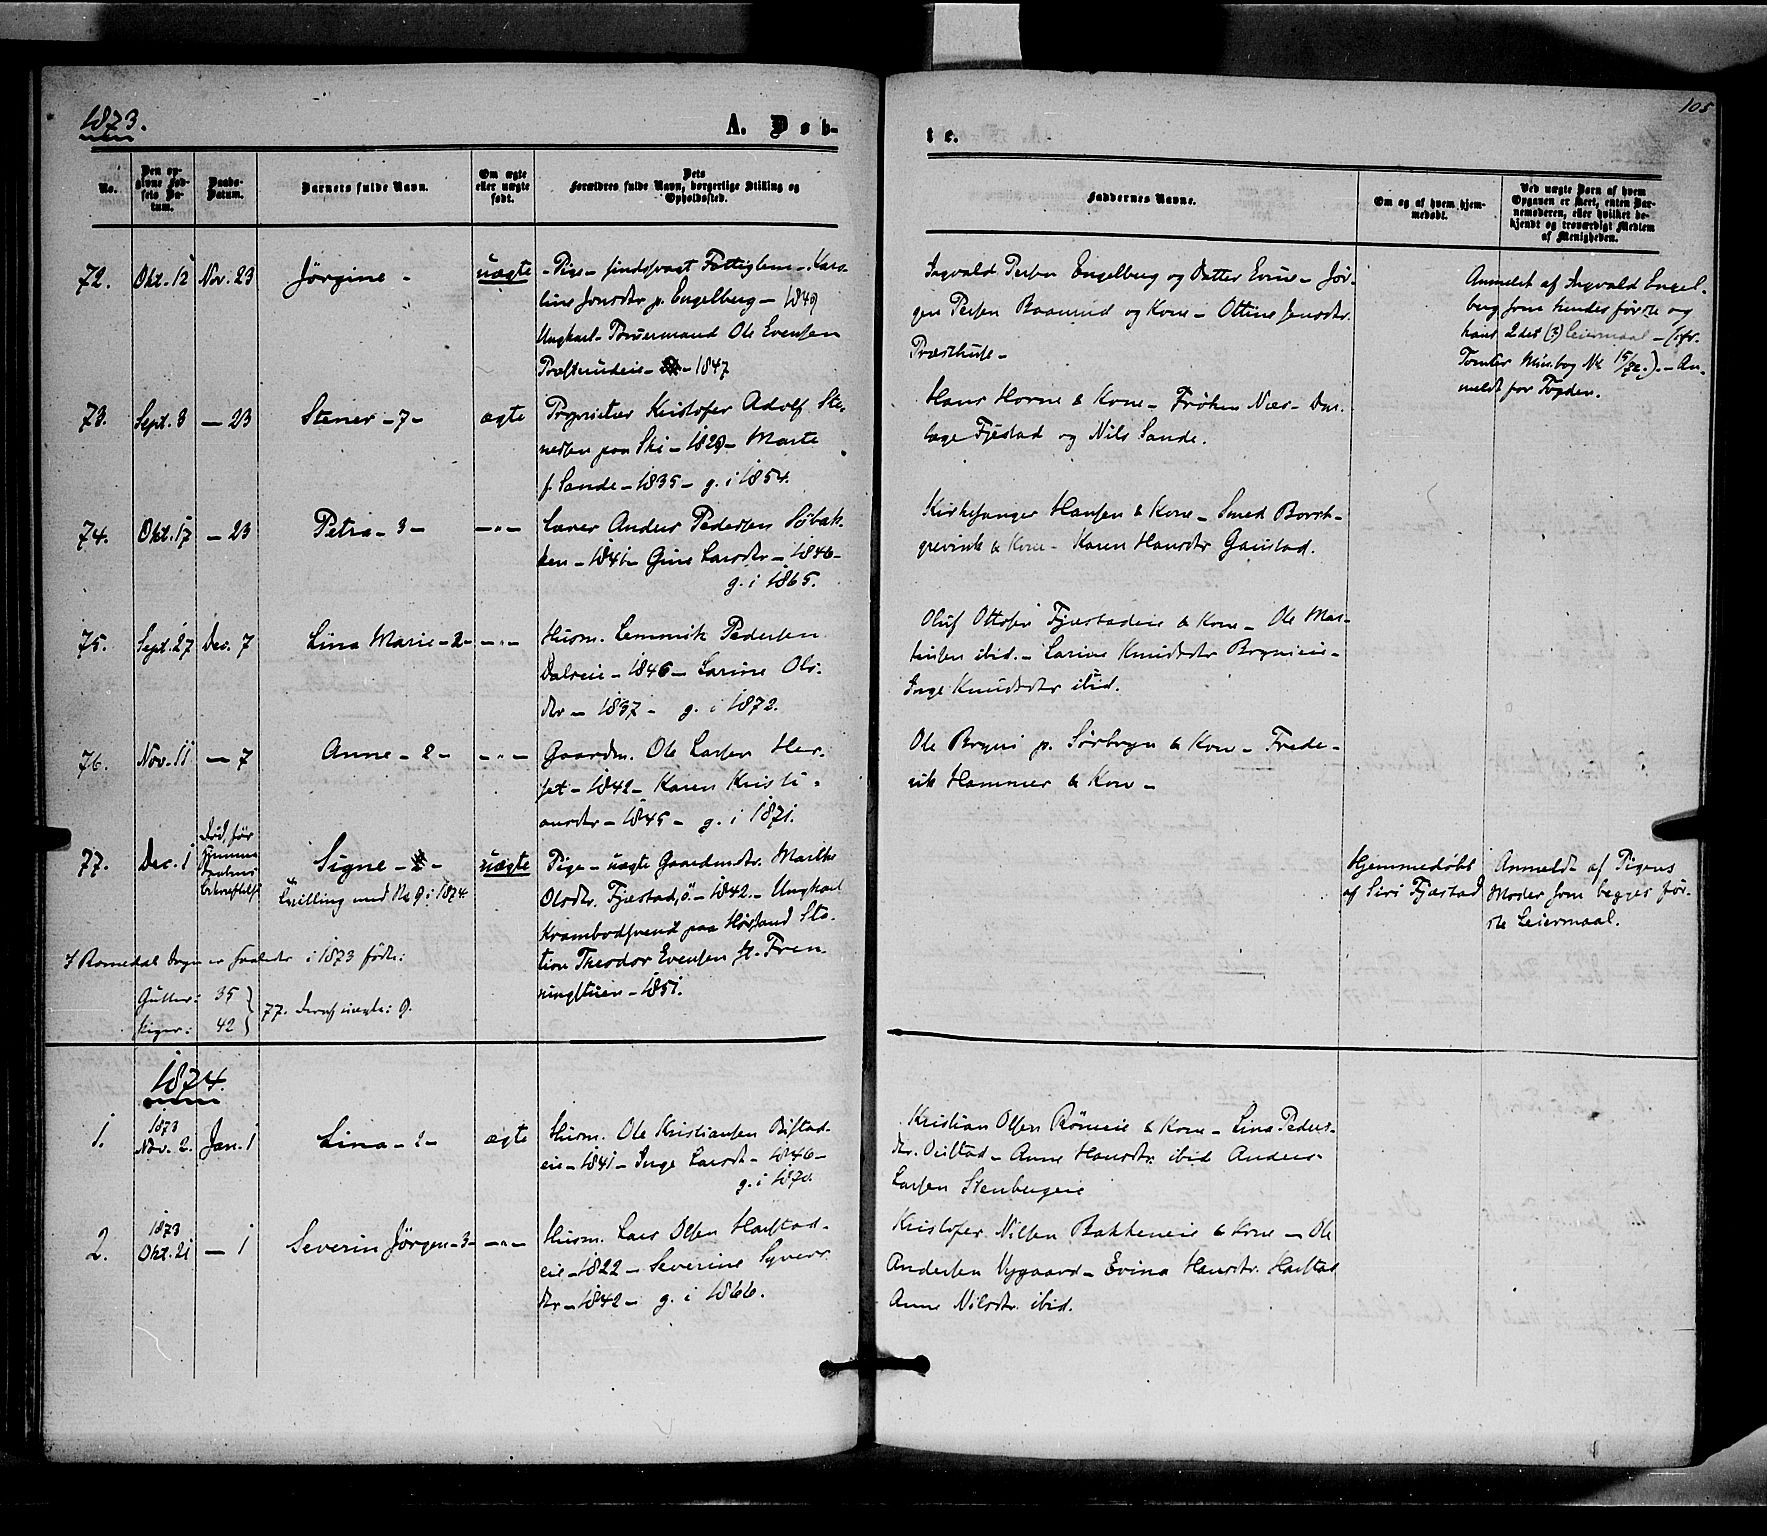 1873.
A. Døb-
te.
105
No.
Den op-
givne Fød-
sels Da-
tum.
Daabs-
Datum.
Barnets fulde Navn.
Om ægte
eller uægte
født.
Dets
Forældres fulde Navn, borgerlige Stilling og
Opholdssted.
Faddernes Navne.
Om og af hvem hjem-
medøbt.
Ved uægte Børn af hvem
Opgaven er skeet, enten Bar-
nemoderen, eller hvilket be-
kjendt og troværdigt Medlem
af Menigheden.
72. Okt. 12 Nov. 23 Jørgine - uægte
- Pige - sindssvagt Fattiglem - Karo-
line Jonsdtr p. Engelberg - 1849
Ungkarl - Ole Evensen
- 1847
Ingvald Persen Engelberg og Datter - Jør-
gen Persen og Kone - Ottine Jensdtr.
Præsthuse -
Anmeldt af Ingvald Engel-
berg som hendes første og
hans 2det (3) Leiermaal - (cfr.
Tomter Min.bog No 15/72.). - An-
meldt for Fogden.
73. Sept. 3 - 23 Stener - 7 - ægte
Proprietær Kristofer Adolf Ste-
nersen paa Ski - 1829 - Marte
f. Sande - 1835 - g. i 1854.
Hans Horne & Kone - Frøken Næs -
Fjestad og Nils Sande.
74. Okt. 17 - 23 Petra - 3 - - " -
Lærer Anders Pedersen Søbak-
ken - 1841 - Gine Larsdtr - 1846 -
g. i 1865.
Kirkesanger Hansen & Kone - Smed Borch-
grevink & Kone - Karen Hansdtr Gaustad.
75. Sept. 27 Dec. 7 Lina Marie - 2 - - " -
Husm. Lemmik Pedersen
Dalseie - 1846 - Larine Ols-
dtr - 1837 - g. i 1872.
Oluf Ottosen Fjæstadeie & Kone - Ole Mar-
tinsen ibid. - Larine Knudsdtr Brynieie -
Inge Knudsdtr ibid.
76. Nov. 11 - 7 Anne - 2 - - " -
Gaardm. Ole Larsen Her-
set - 1842 - Karen Kristi-
ansdtr - 1845 - g. i 1871.
Ole Bryni p. Sørbryn & Kone - Frede-
rik Hammer & Kone -
77. Dec. 1
Død før
Daabens
bekræftelse
Signe - uægte
Tvilling med No 9 i 1874.
Pige - uægte Gaardmdtr. Marthe
Olsdtr. Fjæstad, ø. - 1842 - Ungkarl
Krambodsvend paa Hørsand Sta-
tion Theodor Evensen fr. Fren-
ningstuen - 1851.
Hjemmedøbt
af Siri Fjæstad
Anmeldt af Pigens
Moder som begges før-
ste Leiermaal.
I Romedal Sogn er saaledes i 1873 fødte:
Gutter: 35
Piger: 42
77. Deraf uægte: 9.
1874.
1. 1873
Nov. 2. Jan. 1 Lina - 2 - ægte
Husm. Ole Kristiansen
eie - 1841 - Inge Larsdtr - 1846 -
g. i 1870.
Kristian Olsen & Kone - Lina Peders-
dtr. - Anne Hansdtr. ibid Anders
Larsen Stenbergeie
2. 1873
Okt. 21 - 1 Severin Jørgen - 3 - - " -
Husm. Lars Olsen Harstad-
eie - 1822 - Severine Syvers-
dtr - 1842 - g. i 1866.
Kristofer Nilsen Bakkeneie & Kone - Ole
Andersen Nygaard - Evina Hansdtr. Harstad
Anne Nilsdtr. ibid.